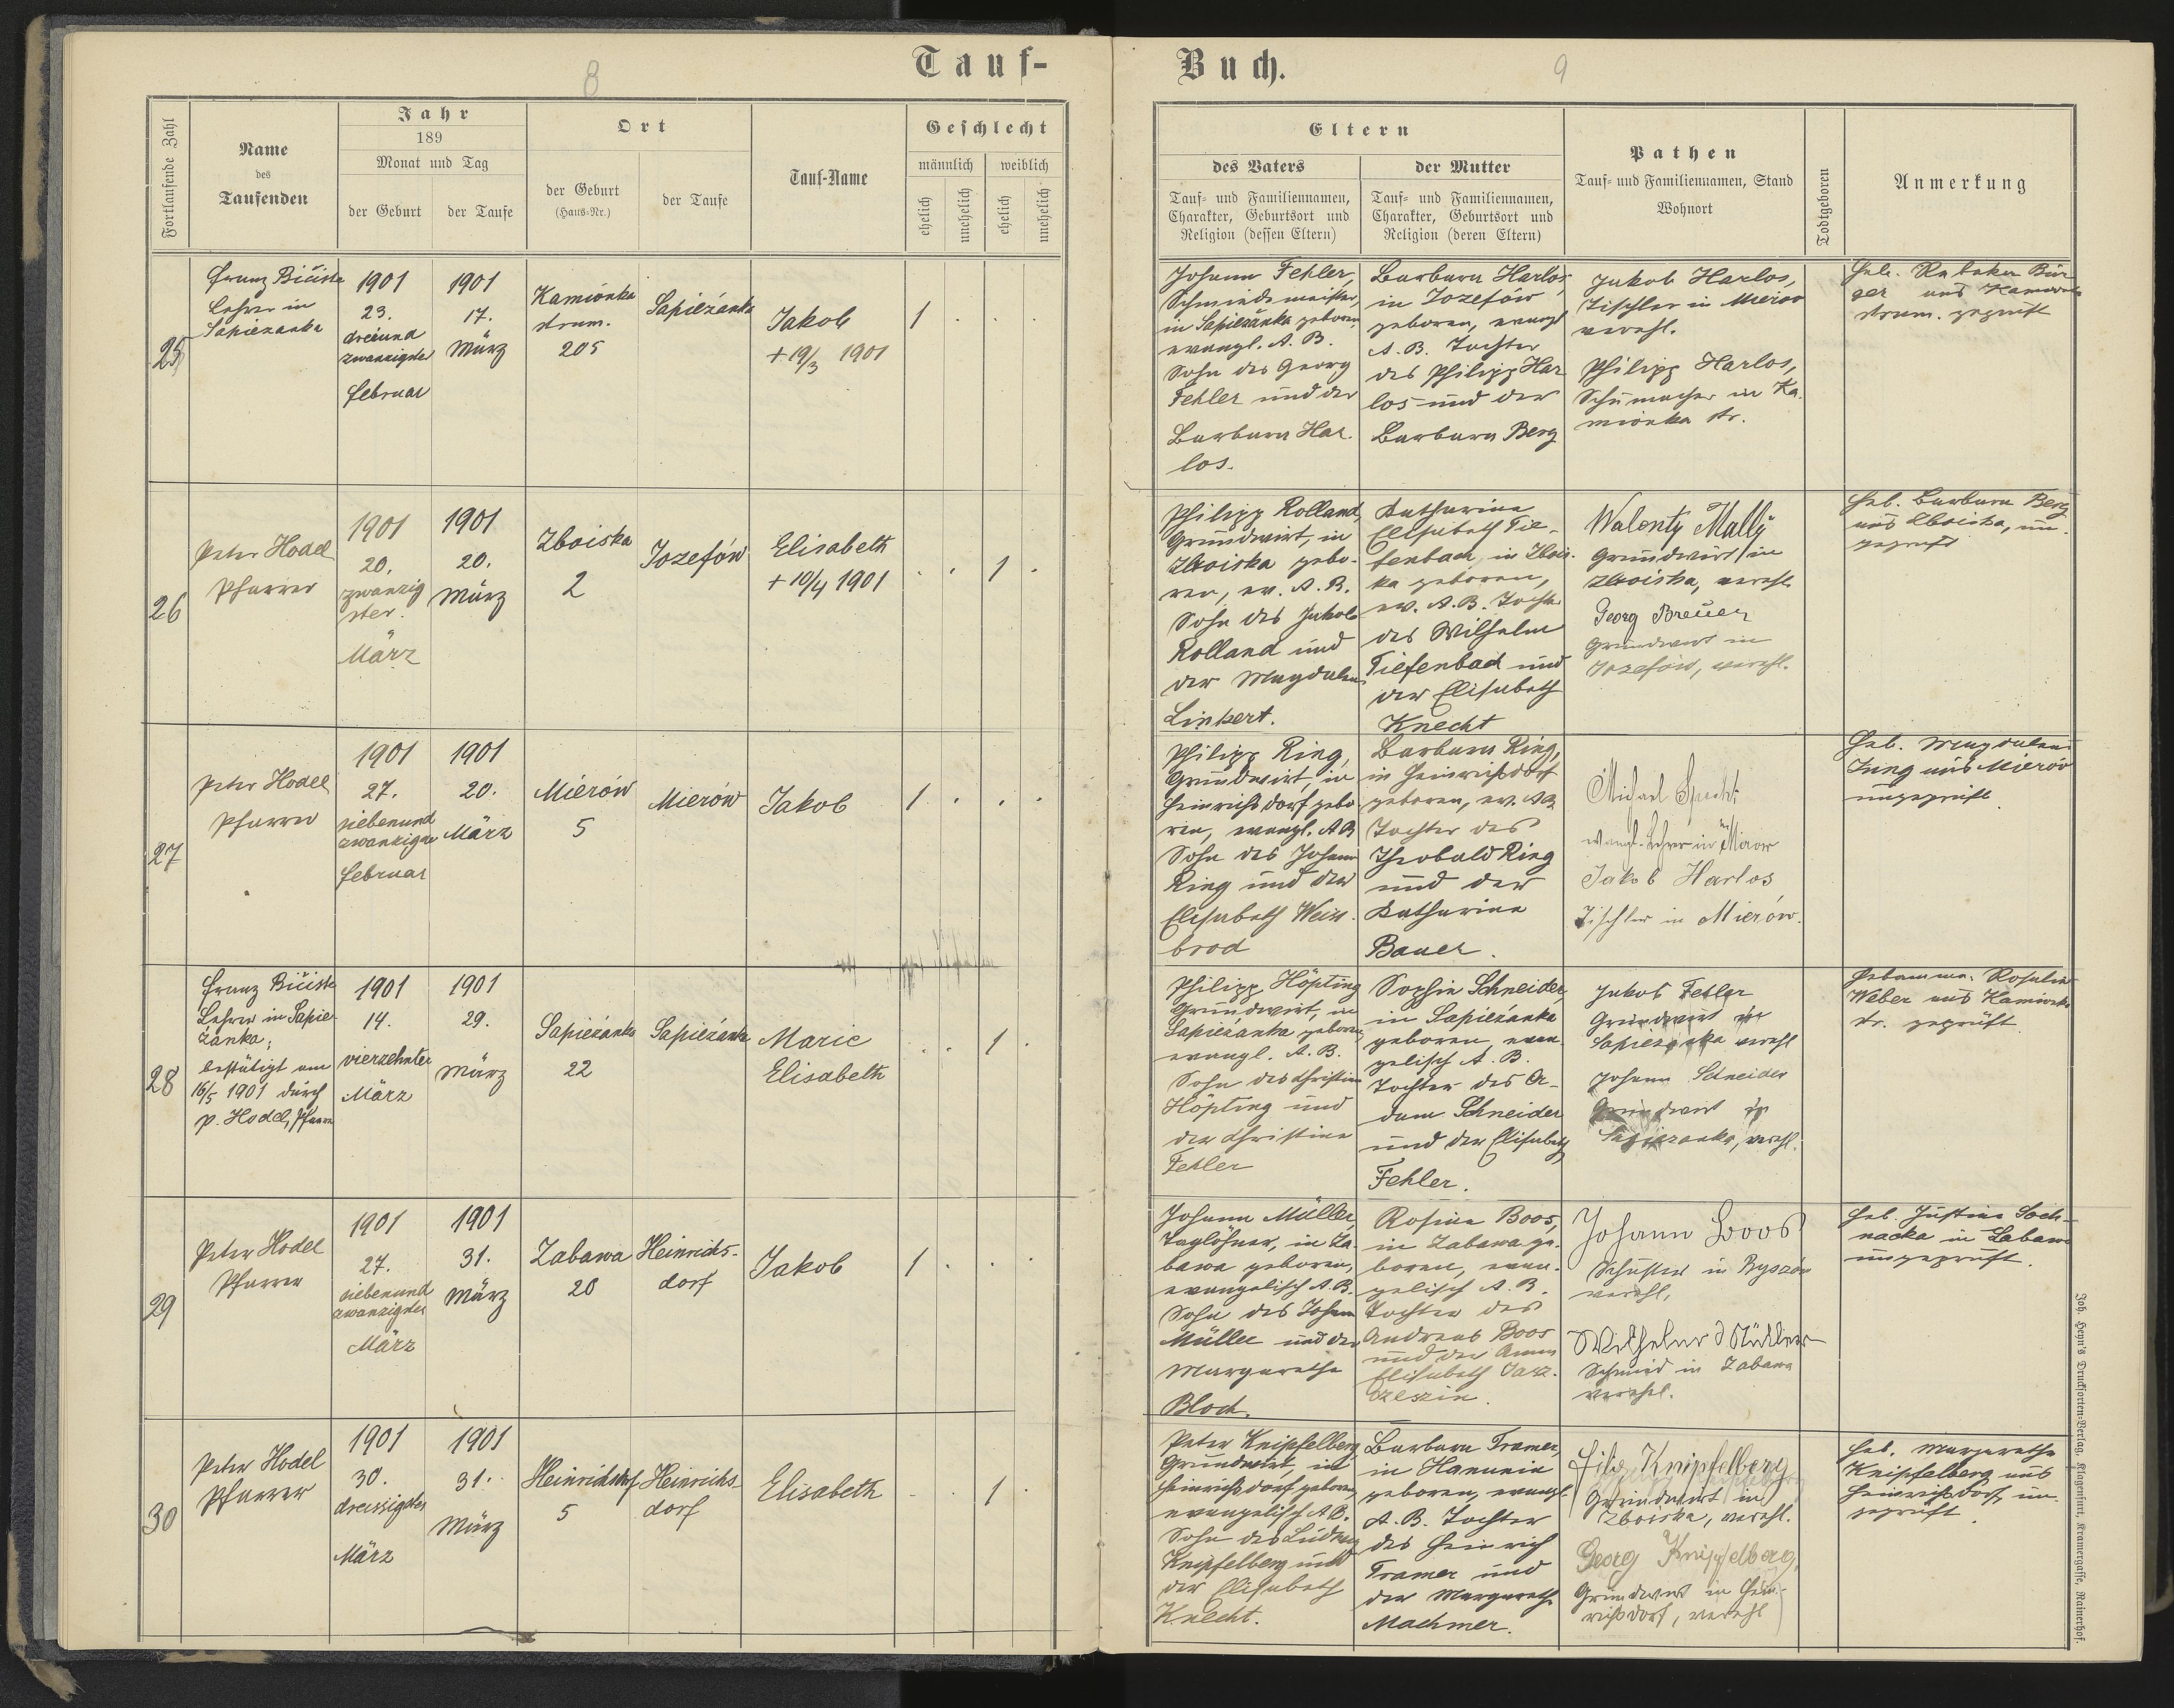 8
Tauf-
Fortlaufende Zahl
Name
des
Taufenden
Jahr
189
Monat und Tag
der Geburt
der Taufe
Ort
der Geburt
(Haus-Nr.)
der Taufe
Tauf-Name
Geschlecht
männlich
weiblich
ehelich
unehelich
ehelich
unehelich
25
Franz
Lehrer in
Sapiezanka
1901
23.
dreiund
zwanzigster
Februar
1901
17.
März
Kamionka
strum.
205
Sapieżanka
Jakob
+ 19/3 1901
1 . . .
26
Peter Hodel
Pfarrer
1901
20.
zwanzig
ster.
März
1901
20.
März
Zboiska
2
Jozefów
Elisabeth
+ 10/4 1901
. . 1 .
27
Peter Hodel
Pfarrer
1901
27.
siebenund
zwanzigster
Februar
1901
20.
März
Mierów
5
Mierów
Jakob
1 . . .
28
Franz
Lehrer in Sapie-
żanka;
bestätigt am
16/5 1901 durch
P. Hodel, Pfarrer
1901
14.
vierzehnter
März
1901
29.
März
Sapieżanka
22
Sapieżanka
Marie
Elisabeth
. . 1 .
29
Peter Hodel
Pfarrer
1901
27.
siebenund
zwanzigster
März
1901
31.
März
Zabawa
20
Heinrichs-
dorf
Jakob
1 . . .
30
Peter Hodel
Pfarrer
1901
30.
dreissigster
März
1901
31.
März
Heinrichsdorf
5
Heinrichs-
dorf
Elisabeth
. . 1 .
Buch.
9
Eltern
des Vaters
Tauf- und Familiennamen,
Charakter, Geburtsort und
Religion (dessen Eltern)
der Mutter
Tauf- und Familiennamen,
Charakter, Geburtsort und
Religion (deren Eltern)
Pathen
Tauf- und Familiennamen, Stand
Wohnort
Todtgeboren
Anmerkung
Johann Fehler,
Schmiedemeister,
in Sapieżanka geboren,
evangl. A. B.
Sohn des Georg
Fehler und der
Barbara Har-
los.
Barbara Harlos,
in Jozefów
geboren, evangl
A. B. Tochter
des Philipp Har
los und der
Barbara Berg
Jakob Harlos,
Tischler in Mierow
verehl.
Philipp Harlos,
Schumacher in Ka-
mionka str.
Heb.
und Kamionka
strum. geprüft
Philipp Rolland,
Grundwirt, in
Zboiska gebo-
ren, ev. A. B.
Sohn des Jakob
Rolland und
der Magdalena
Linkert.
Katharina
Elisabeth Tie-
fenbach, in Zbois-
ka geboren,
ev. A. B. Tochter
des Wilhelm
Tiefenbach und
der Elisabeth
Knecht
Walenty Mally
Grundwirt in
Zboiska, verehl.
Georg Breuer
Grundwirt in
Jozefów, verehl.
Heb. Barbara Berg
aus Zboiska, un-
geprüft
Philipp Ring,
Grundwirt, in
Heinrichsdorf gebo-
ren, evangl. A B
Sohn des Johann
Ring und der
Elisabeth Weis-
brod
Barbara Ring,
in Heinrichsdorf
geboren, ev. AB
Tochter des
Theobald Ring
und der
Katharina
Bauer.
Michael Specht
evangl. Lehrer in Mierow
Jakob Harlos
Tischler in Mierów.
Heb. Magdalena
Jung aus Mierów
ungeprüft.
Philipp Höpting
Grundwirt, in
Sapieżanka geboren,
evangl. A. B.
Sohn des Christian
Höpting und
der Christina
Fehler
Sophie Schneider,
in Sapieżanka
geboren, evan-
gelisch A. B.
Tochter des A-
dam Schneider
und der Elisabeth
Fehler.
Jakob Fehler
Grundwirt in
Sapiezanka verehl
Johann Schneider
Grundwirt in
Sapiezanka, verehl.
Hebamme. Rosalia
Weber aus Kamionka
str. geprüft.
Johann Müller,
Taglöhner, in Za-
bawa geboren,
evangelisch A. B.
Sohn des Johann
Müller und der
Margarethe
Bloch.
Rosina Boos,
in Zabawa ge-
boren, evan-
gelisch A. B.
Tochter des
Andreas Boos
und der Anna
Elisabeth
Johann Boos
Schuster in
verehl.
Wilhelm Müller
Schmied in Zabawa
verehl.
Heb. Justina
in Zabawa
ungeprüft.
Peter Knipfelberg
Grundwirt, in
Heinrichsdorf geboren,
evangelisch A B.
Sohn des Ludwig
Knipfelberg und
der Elisabeth
Knecht.
Barbara Tramer,
in Hanunin
geboren, evangl.
A. B. Tochter
des Heinrich
Tramer und
der Margarethe
Machmer.
Filip Knipfelberg
Grundwirt in
Zboiska, verehl.
Georg Knipfelberg,
Grundwirt in Hein-
richsdorf, verehl
Heb. Margarethe
Knipfelberg aus
Heinrichsdorf, un-
geprüft.
Joh. Heyn's Drucksorten-Verlag, Klagenfurt, Kramergasse, Rainerhof.